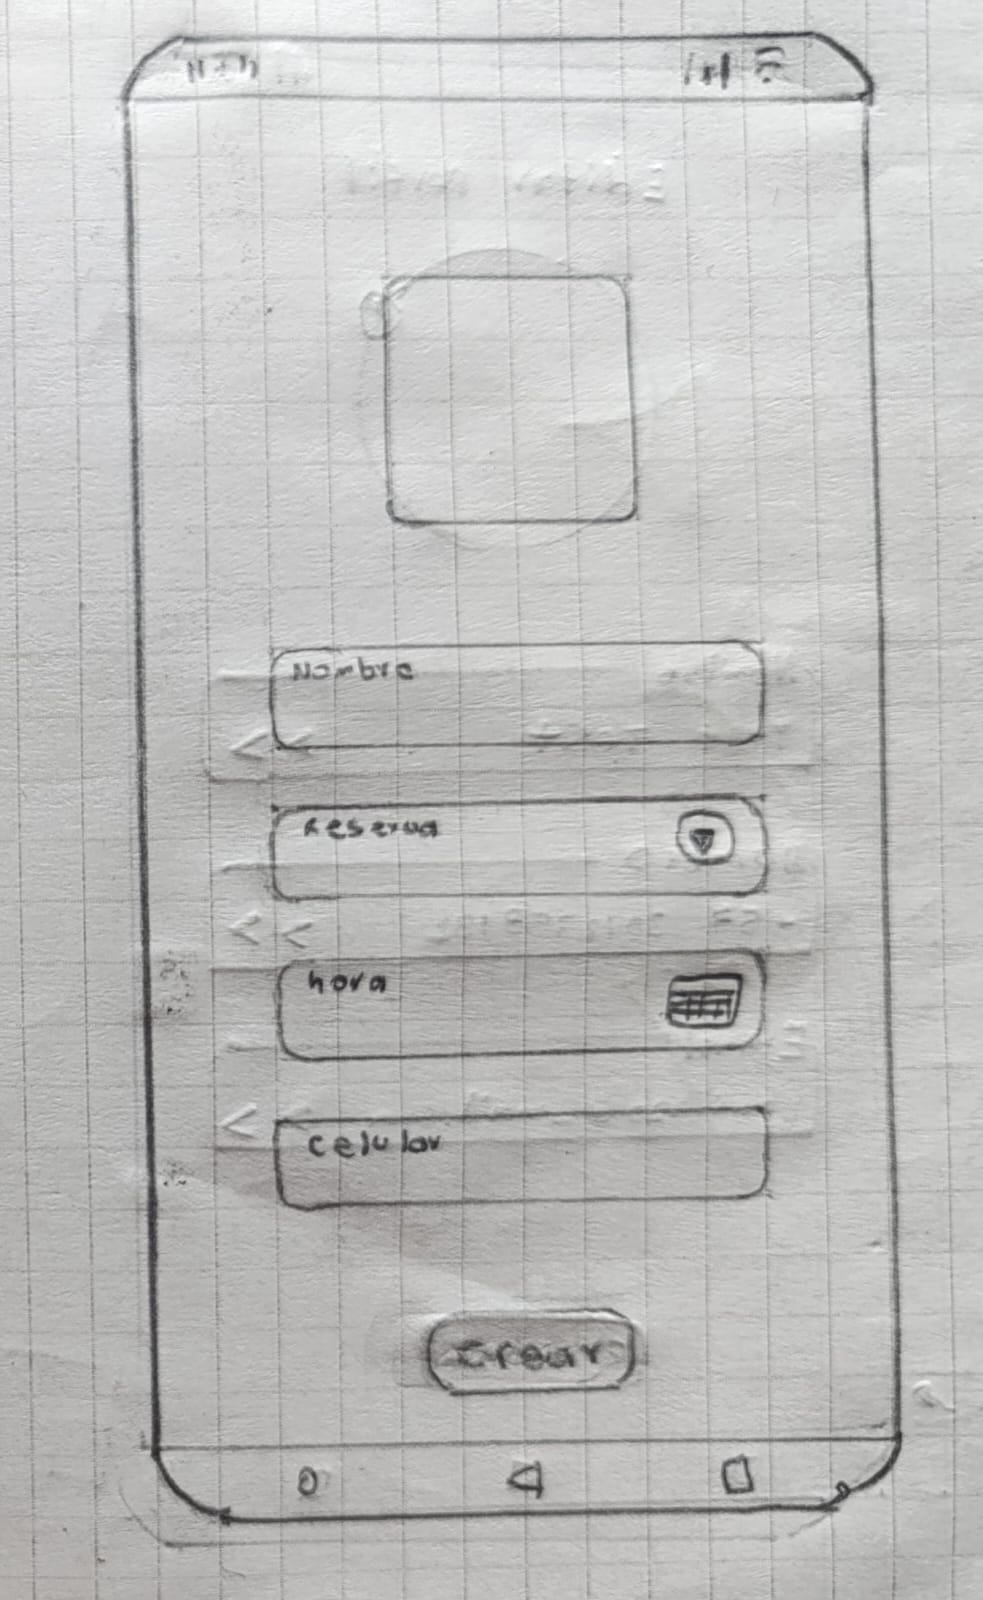 Nombre
Reserva
hora
celular
Crear